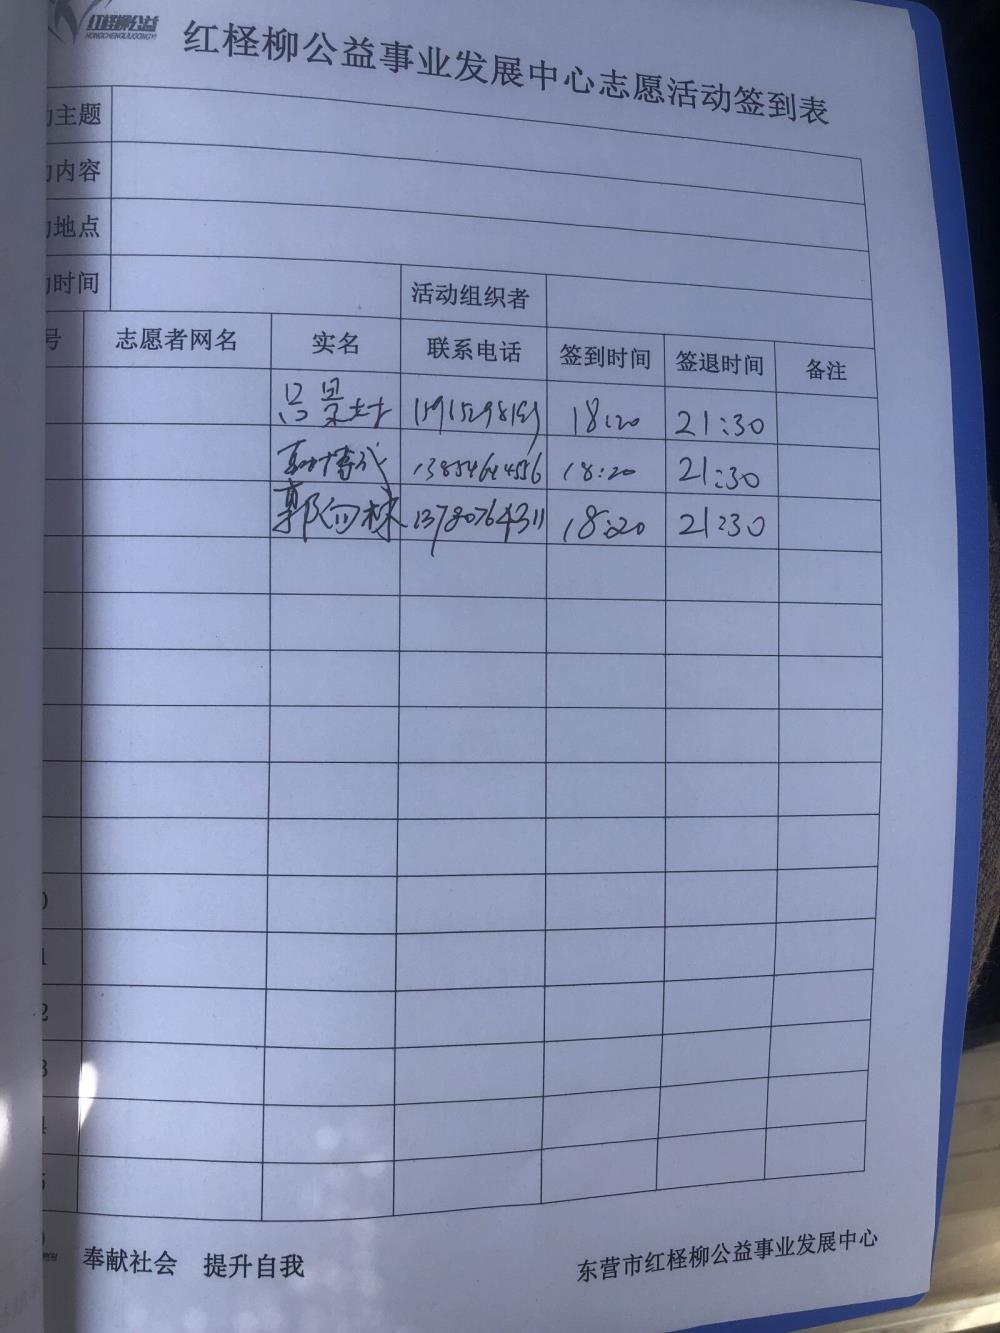 红柽柳公益
HONGCHENGLIUGONGYI
红柽柳公益事业发展中心志愿活动签到表
主题
内容
地点
时间 活动组织者
号 志愿者网名 实名 联系电话 签到时间 签退时间 备注
18:20 21:30
18:20 21:30
13780764311 18:20 21:30
0
1
2
3
4
5
奉献社会 提升自我
东营市红柽柳公益事业发展中心